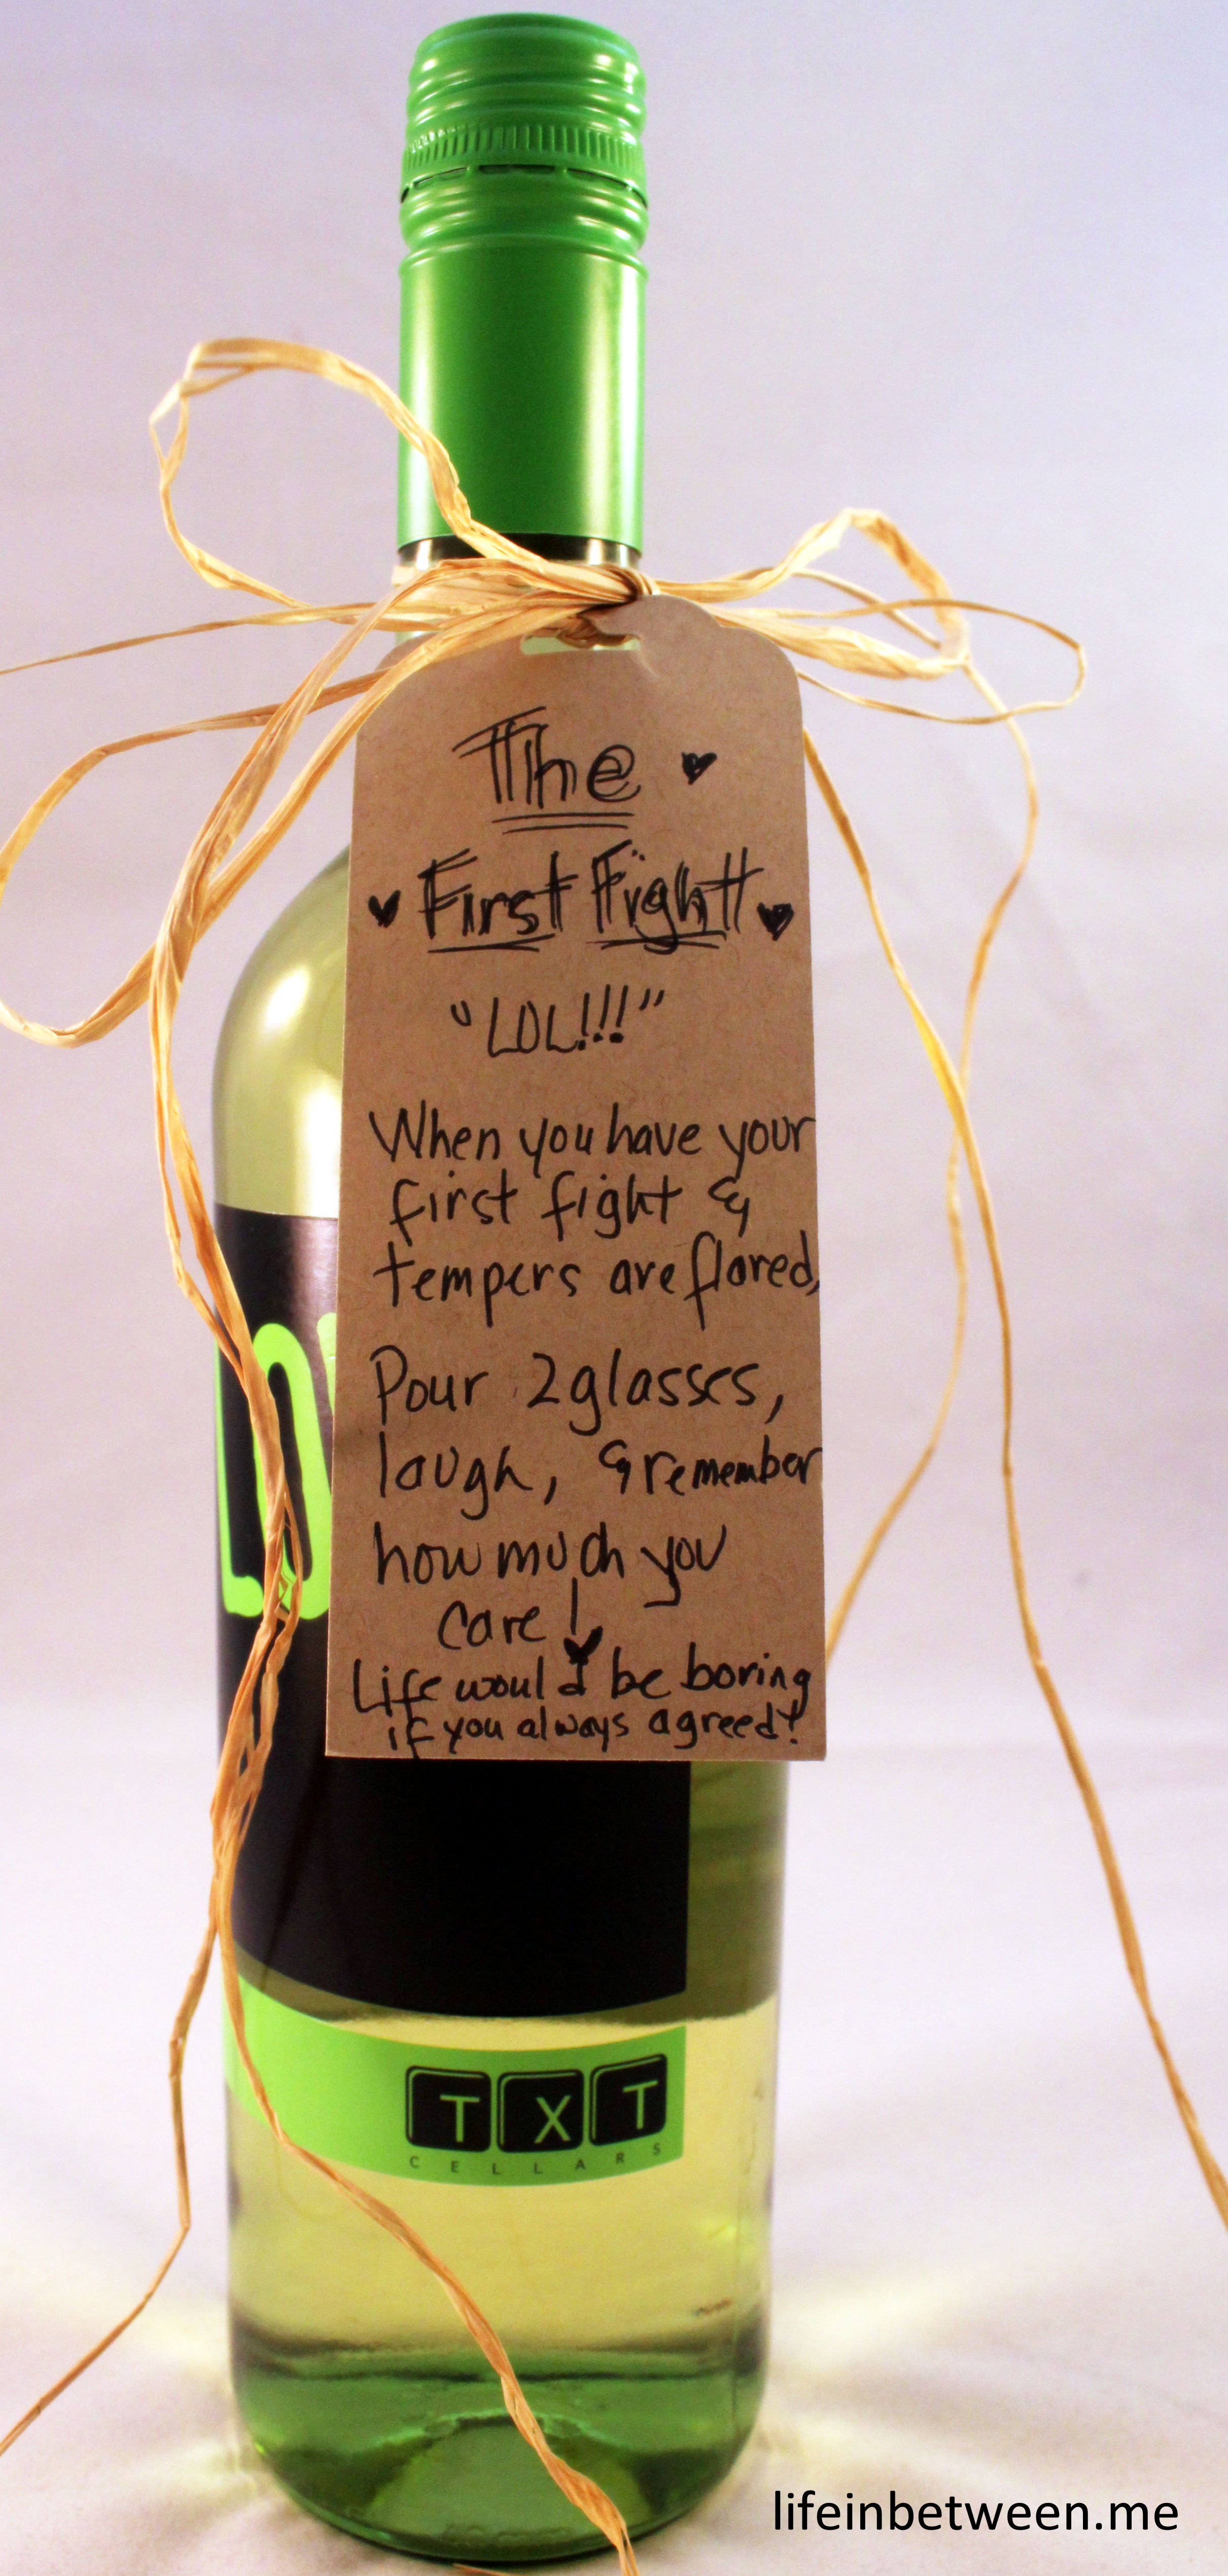 The
First Fight
"LOL!!!"
When you have your
first fight &
tempers are flared,
Pour 2 glasses,
laugh, & remember
how much you
care!
Life would be boring
if you always agreed!
TXT
CELLARS
lifeinbetween.me